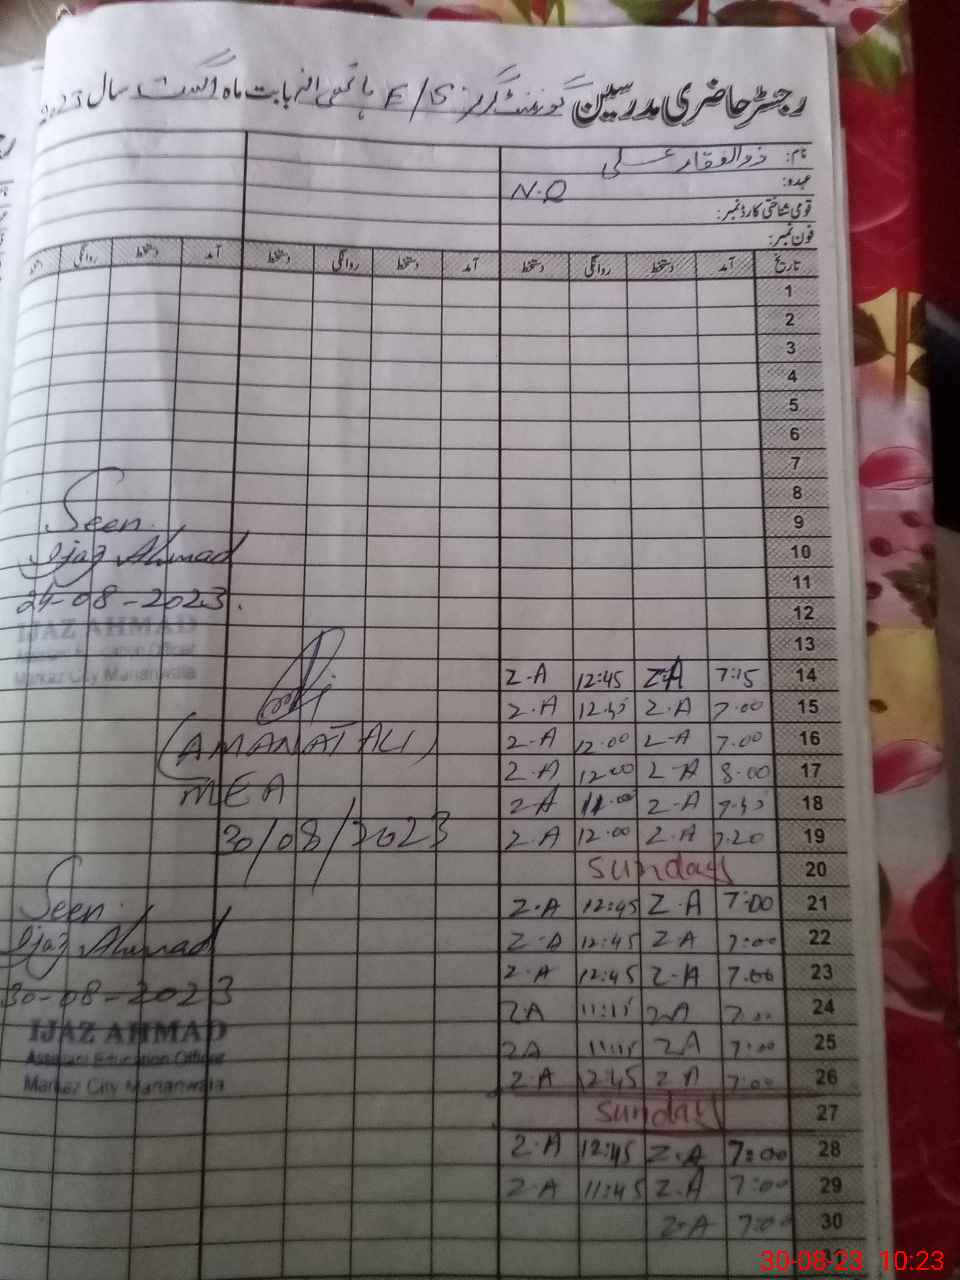 رجسٹر حاضری مدرسین گورنمنٹ گرلز E/S بابت ماہ اگست سال 2023
نام: ذوالفقار علی
عہدہ: N.Q
قومی شناختی کارڈ نمبر:
فون نمبر:
تاریخ آمد دستخط روانگی دستخط آمد دستخط روانگی دستخط آمد دستخط روانگی
1
2
3
4
5
6
7
8
9
10
11
12
13
14 7:15 Z.A 12:45 Z.A
15 7.00 Z.A Z.A
16 7.00 Z-A 12:00 Z.A
17 8.00 Z-A 12:00 Z.A
18 Z.A Z.A
19 7.20 Z.A 12:00 Z.A
20 Sunday
21 7:00 Z.A 12:45 Z.A
22 7:00 Z.A 12:45 Z.A
23 7.00 Z-A 12:45 Z.A
24 7:00 Z.A 11:15 Z.A
25 7:00 Z.A 11:15 Z.A
26 7:00 Z.A Z.A
27 Sunday
28 7:00 Z.A 12:45 Z.A
29 7:00 Z.A 11:45 Z.A
30 7:00 Z.A
Seen
Ijaz Ahmad
24-08-2023.
IJAZ AHMAD
Assistant Education Officer
Markaz City Mananwala
(AMANAT ALI)
MEA
30/08/2023
Seen
Ijaz Ahmad
30-08-2023
IJAZ AHMAD
Assistant Education Officer
Markaz City Mananwala
30-08-23 10:23